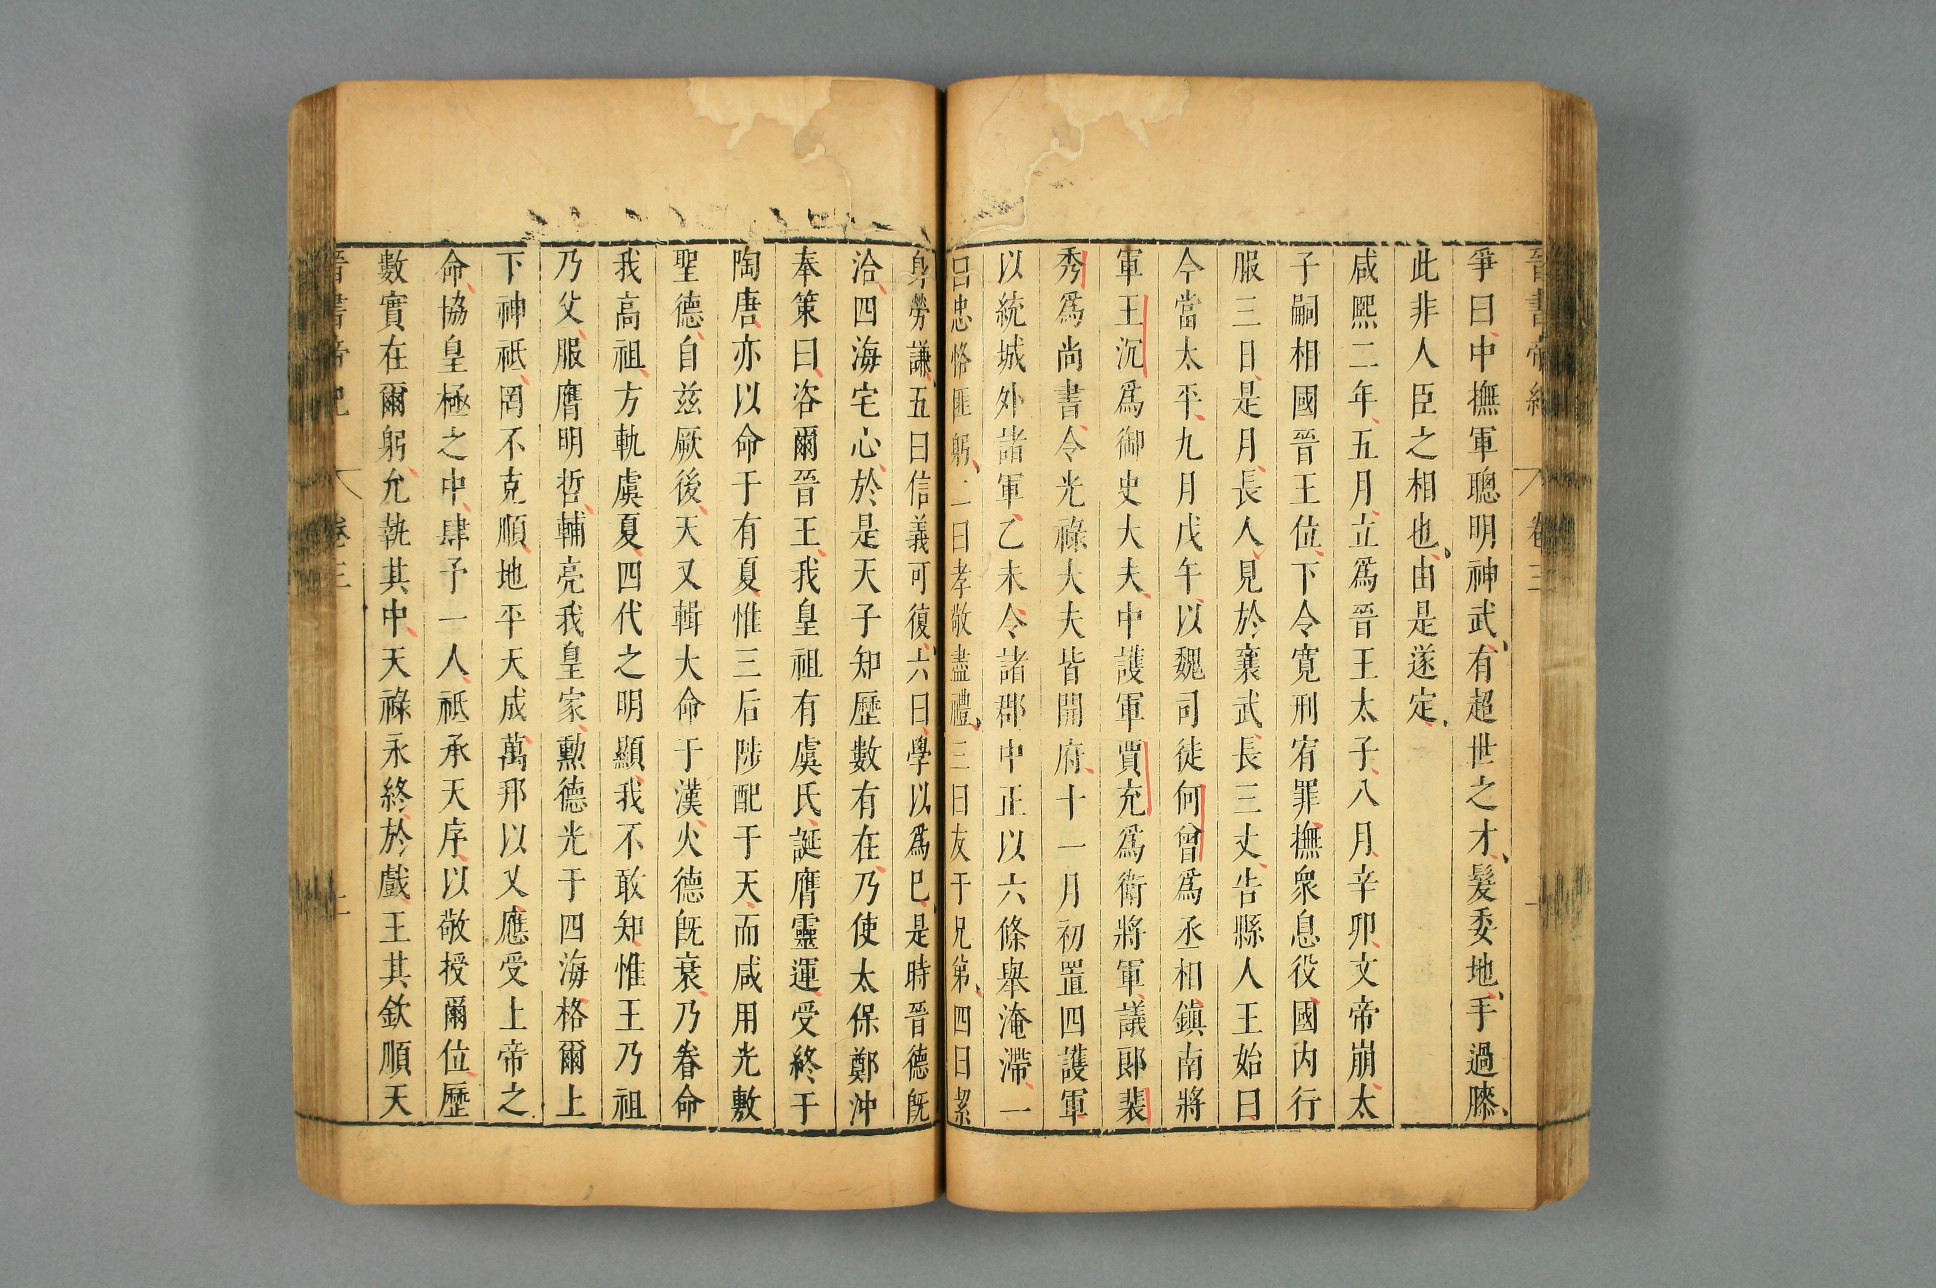 晉書帝紀 卷三 一
爭曰中撫軍聰明神武有超世之才髮委地手過膝
此非人臣之相也由是遂定
咸熙二年五月立爲晉王太子八月辛卯文帝崩太
子嗣相國晉王位下令寬刑宥罪撫衆息役國內行
服三日是月長人見於襄武長三丈告縣人王始曰
今當太平九月戊午以魏司徒何曾爲丞相鎮南將
軍王沉爲御史大夫中護軍賈充爲衛將軍議郎裴
秀爲尚書令光祿大夫皆開府十一月初置四護軍
以統城外諸軍乙未令諸郡中正以六條舉淹滯一
曰忠恪匪躬二曰孝敬盡禮三曰友于兄第四曰絜
身勞謙五曰信義可復六曰學以爲已是時晉德旣
洽四海宅心於是天子知歷數有在乃使太保鄭沖
奉策曰咨爾晉王我皇祖有虞氏誕膺靈運受終于
陶唐亦以命于有夏惟三后陟配于天而咸用光敷
聖德自兹厥後天又輯大命于漢火德旣衰乃眷命
我高祖方軌虞夏四代之明顯我不敢知惟王乃祖
乃父服膺明哲輔亮我皇家勳德光于四海格爾上
下神祗罔不克順地平天成萬邦以乂應受上帝之
命協皇極之中肆予一人祗承天序以敬授爾位歷
數實在爾躬允執其中天祿永終於戲王其欽順天
晉書帝紀 卷三 二